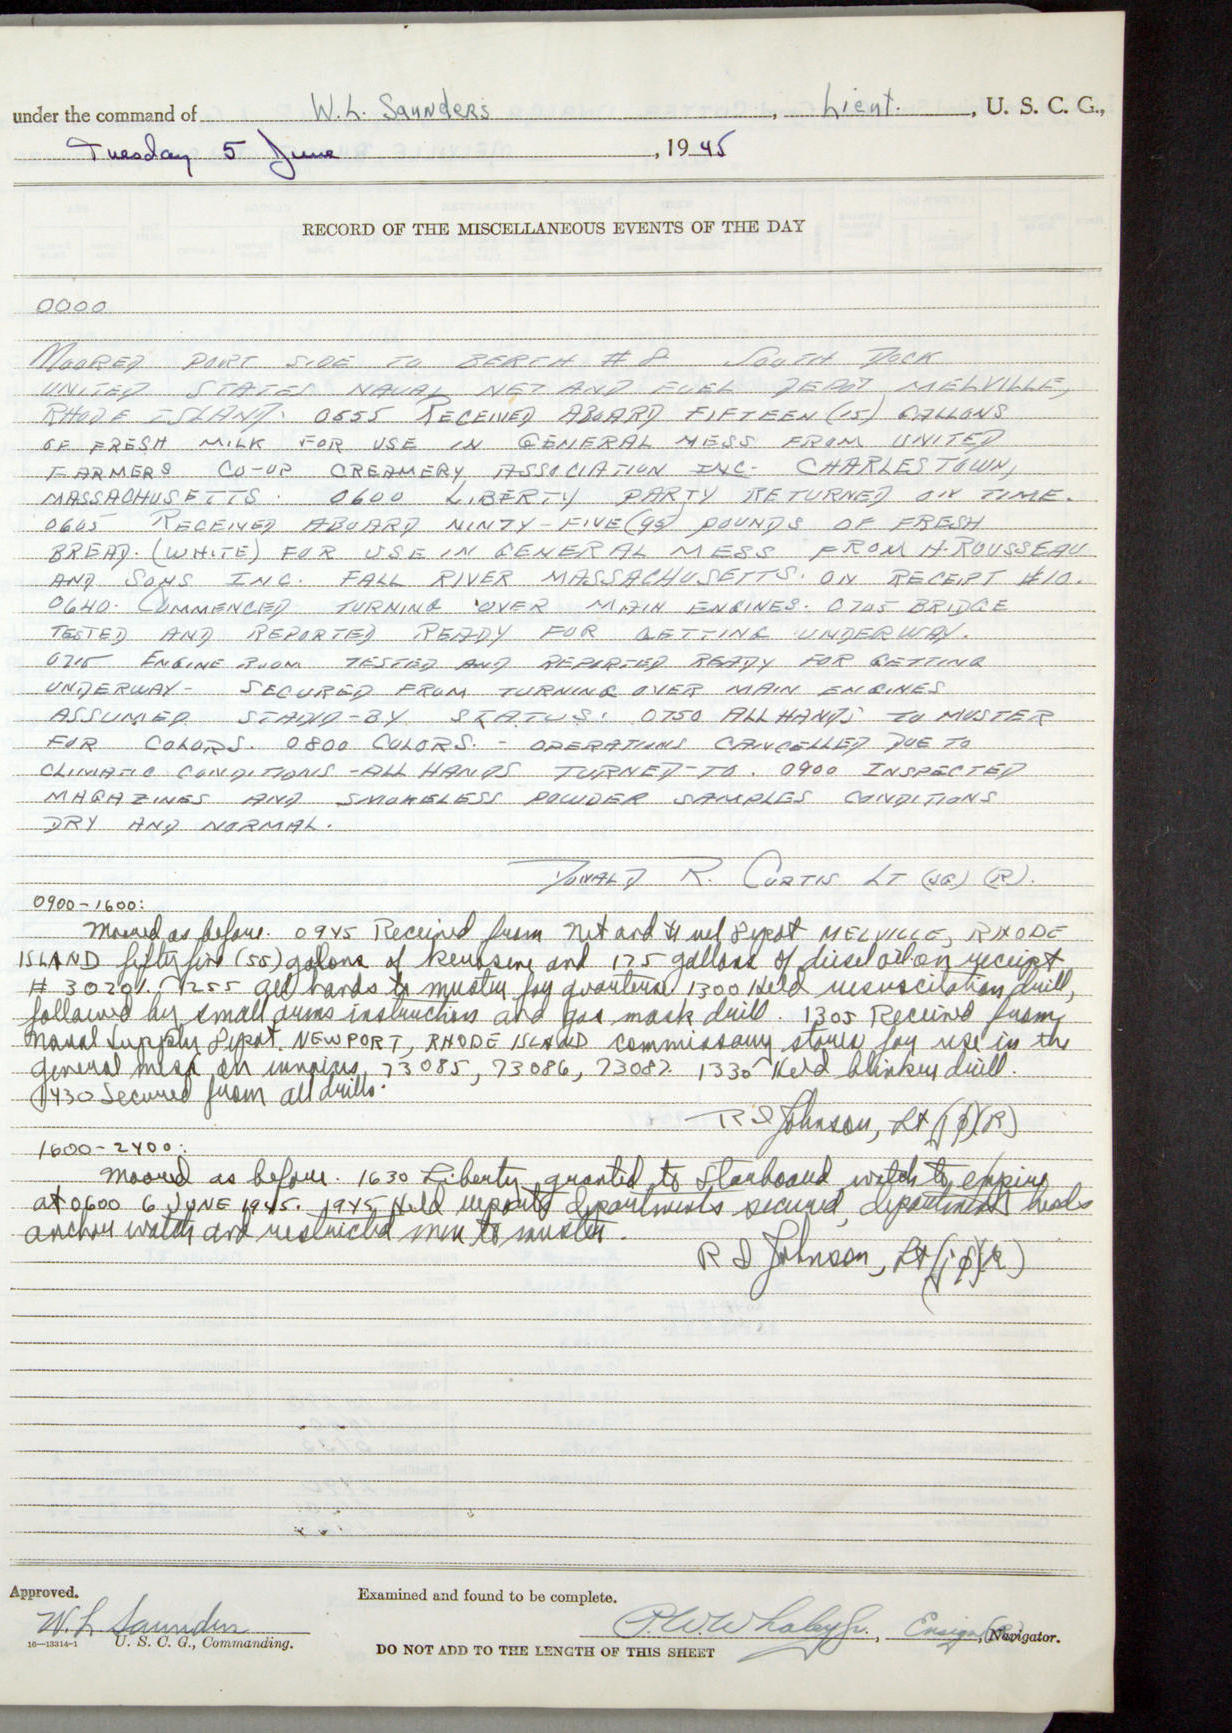 under the command of W. L. Saunders, Lieut., U. S. C. G.,
Tuesday 5 June, 1945
RECORD OF THE MISCELLANEOUS EVENTS OF THE DAY
0000
MOORED PORT SIDE TO BERTH #8 SOUTH DOCK
UNITED STATES NAVAL NET AND FUEL DEPOT, MELVILLE,
RHODE ISLAND. 0555 RECEIVED ABOARD FIFTEEN (15) GALLONS
OF FRESH MILK FOR USE IN GENERAL MESS FROM UNITED
FARMERS CO-OP CREAMERY, ASSOCIATION INC. CHARLESTOWN,
MASSACHUSETTS. 0600 LIBERTY PARTY RETURNED ON TIME.
0605 RECEIVED ABOARD NINTY-FIVE (95) POUNDS OF FRESH
BREAD. (WHITE) FOR USE IN GENERAL MESS FROM H. ROUSSEAU
AND SONS INC. FALL RIVER MASSACHUSETTS. ON RECEIPT #10.
0640. COMMENCED TURNING OVER MAIN ENGINES. 0705 BRIDGE
TESTED AND REPORTED READY FOR GETTING UNDERWAY.
0715 ENGINE ROOM TESTED AND REPORTED READY FOR GETTING
UNDERWAY - SECURED FROM TURNING OVER MAIN ENGINES
ASSUMED STAND-BY STATUS. 0750 ALL HANDS TO MUSTER
FOR COLORS. 0800 COLORS. - OPERATIONS CANCELLED DUE TO
CLIMATIC CONDITIONS - ALL HANDS TURNED-TO. 0900 INSPECTED
MAGAZINES AND SMOKELESS POWDER SAMPLES CONDITIONS
DRY AND NORMAL.
DONALD R. CURTIS LT (JG) (R).
0900-1600:
Moored as before. 0945 Received from Net and Fuel Depot MELVILLE, RHODE
ISLAND fifty five (55) galons of kerosene and 175 gallons of diesel oil on receipt
# 30201. 1255 All hands to muster for quarters 1300 Held resuscitation drill,
followed by small arms instruction and gas mask drill. 1305 Received from
Naval Supply Depot. NEWPORT, RHODE ISLAND commissary stores for use in the
general mess on invoices, 73085, 73086, 73087. 1330 Held blinker drill.
1430 Secured from all drills.
R D Johnson, Lt (jg)(R)
1600-2400:
Moored as before. 1630 Liberty granted to Starboard watch to expire
at 0600 6 JUNE 1945. 1945 Held reports departments secured, department heads
anchor watch and restricted men to muster.
R D Johnson, Lt (jg)(R)
Approved.
Examined and found to be complete.
W. L Saunders
P. W. Whaley Jr., Ensign, Navigator.
16-13314-1 U. S. C. G., Commanding.
DO NOT ADD TO THE LENGTH OF THIS SHEET